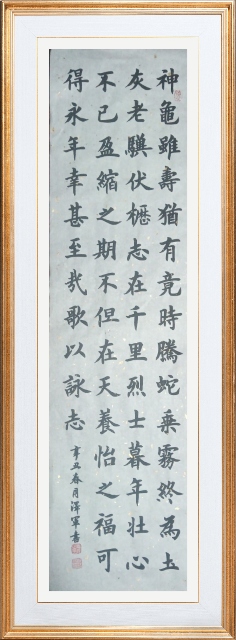 神龜雖壽猶有竟時騰蛇乘霧終為土
灰老驥伏櫪志在千里烈士暮年壯心
不已盈縮之期不但在天養怡之福可
得永年幸甚至哉歌以詠志
辛丑春月澤軍書